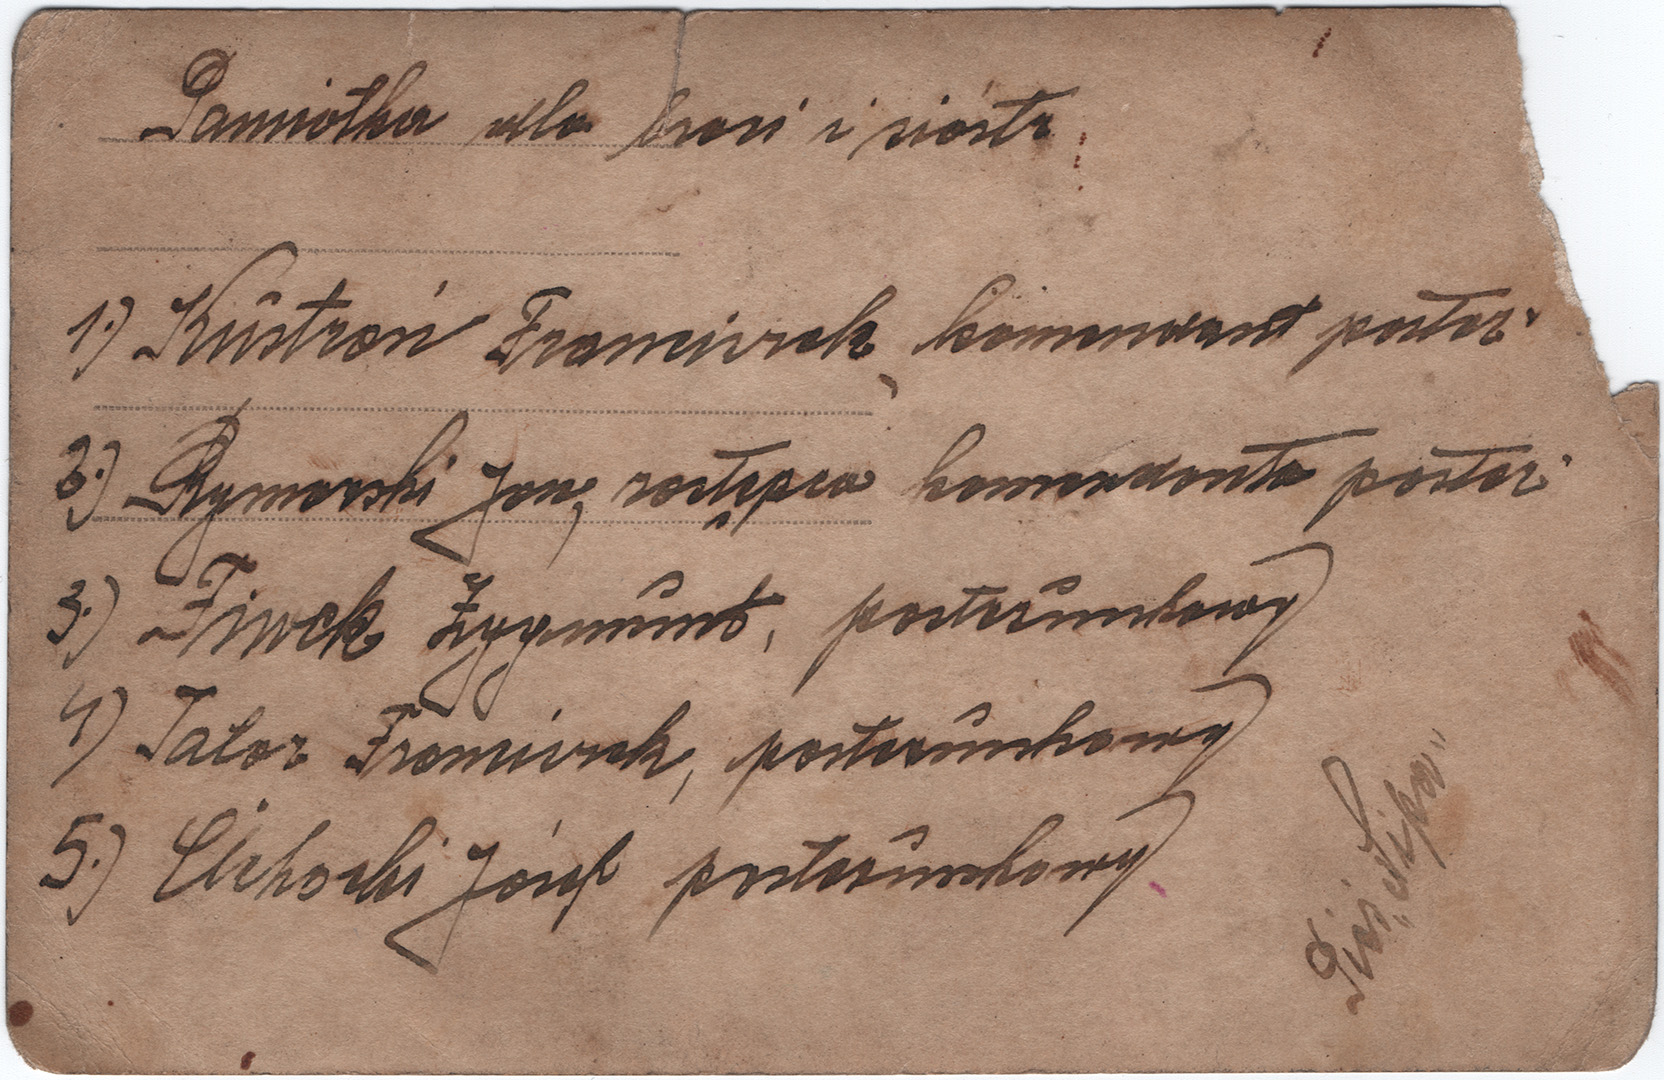 Pamiątka dla braci i sióstr
1.) Kustroń Franciszek, komendant poster.
2.) Rymarski Jan, zastępca komendanta poster.
3.) Fiwek Zygmunt, posterunkowy
4) Tabor Franciszek, posterunkowy
5.) Cichocki Józef posterunkowy
Pies „Lipa"